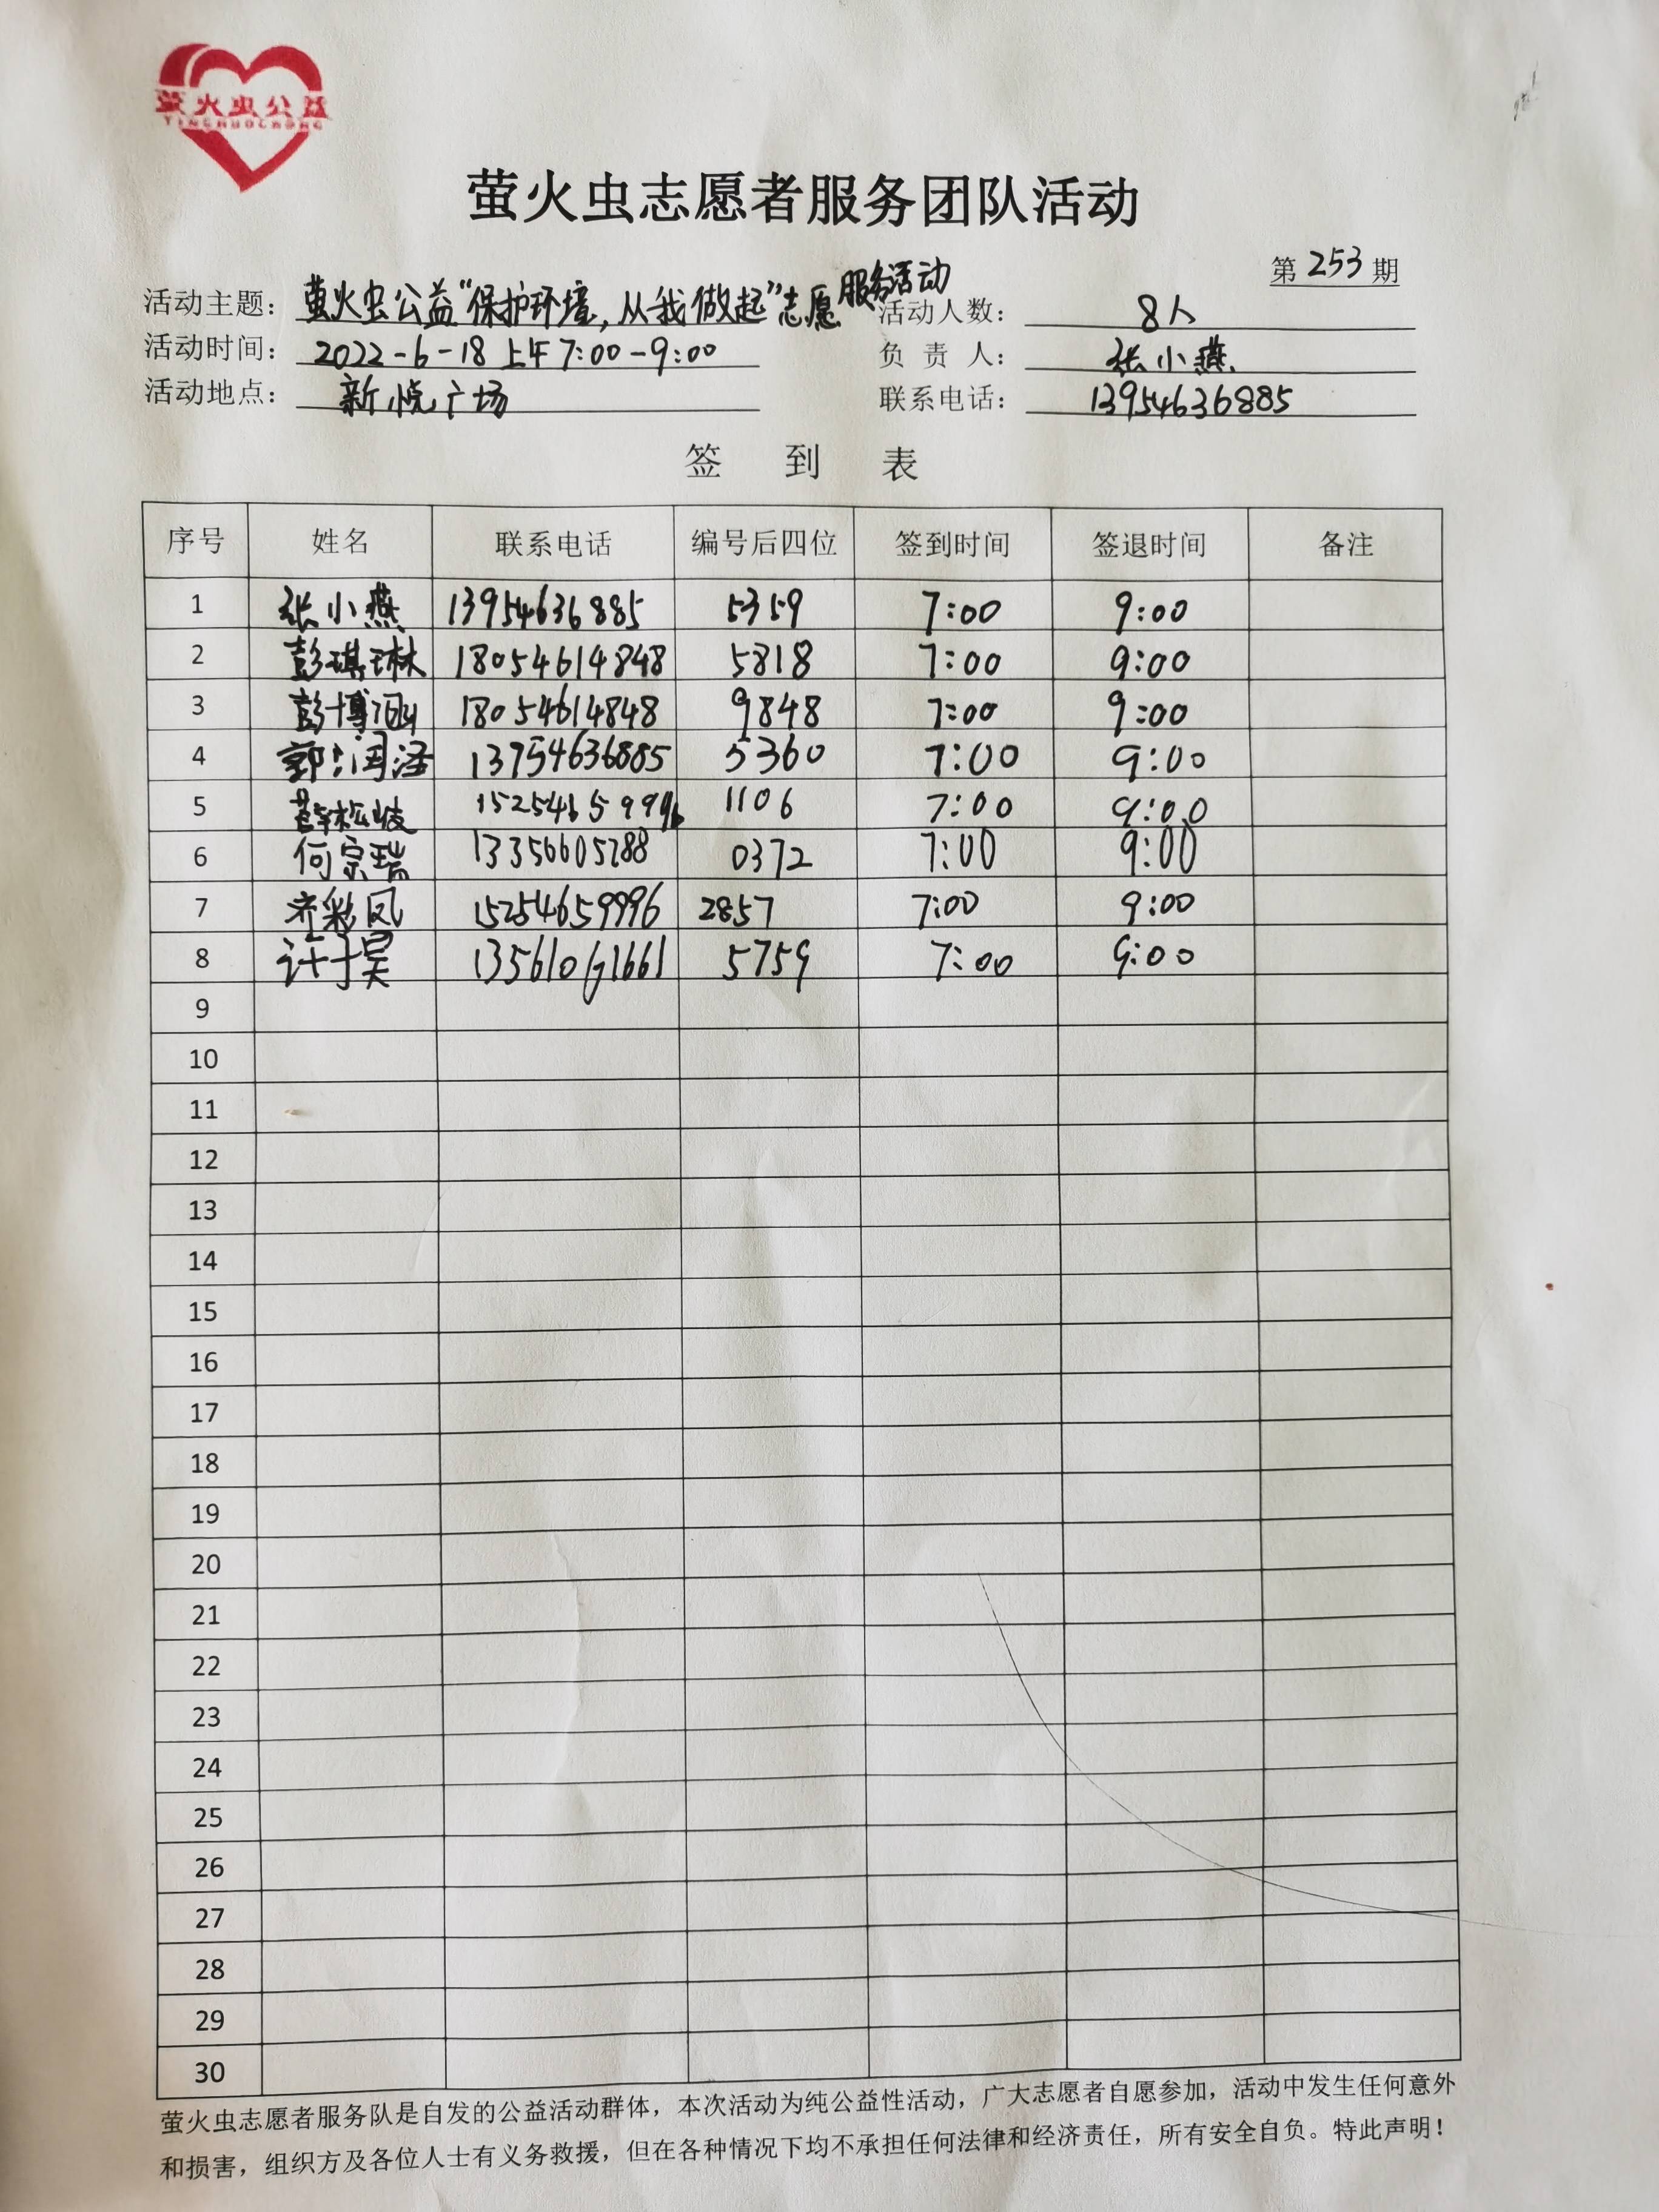 萤火虫公益
YINGHUOCHONG
萤火虫志愿者服务团队活动
第 253 期
活动主题: 萤火虫公益“保护环境,从我做起”志愿服务活动 活动人数: 8人
活动时间: 2022-6-18 上午 7:00-9:00 负 责 人: 张小燕
活动地点: 新悦广场 联系电话: 13954636885
签 到 表
序号 姓名 联系电话 编号后四位 签到时间 签退时间 备注
1 张小燕 13954636885 5359 7:00 9:00
2 彭琪琳 18054614848 5818 7:00 9:00
3 彭博涵 18054614848 9848 7:00 9:00
4 郭润泽 13954636885 5360 7:00 9:00
5 薛松岐 15254659996 1106 7:00 9:00
6 何宗瑞 13356605288 0372 7:00 9:00
7 齐彩凤 15254659996 2857 7:00 9:00
8 许于昊 5759 7:00 9:00
9
10
11
12
13
14
15
16
17
18
19
20
21
22
23
24
25
26
27
28
29
30
萤火虫志愿者服务队是自发的公益活动群体，本次活动为纯公益性活动，广大志愿者自愿参加，活动中发生任何意外
和损害，组织方及各位人士有义务救援，但在各种情况下均不承担任何法律和经济责任，所有安全自负。特此声明！